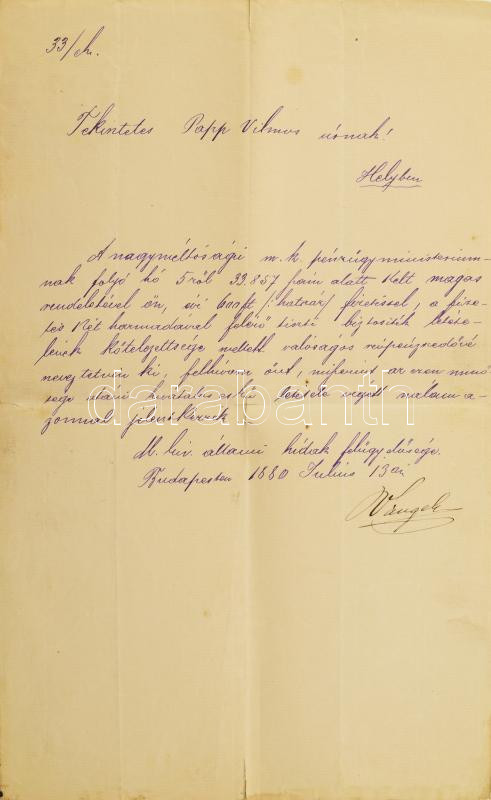 33/h.
Tekintetes Papp Vilmos úrnak!
Helyben
A nagyméltóságú m. k. pénzügyministerium-
nak folyó hó 5ről 33.857 szám alatt kelt magas
rendeletével ön, évi 600ft /:hatszáz/ fizetéssel, a fize-
tés két harmadával felérő tiszti biztosíték letéte-
lének kötelezettsége mellett valóságos vámpénzkezelővé
neveztetvén ki, felhívom önt, miszerint az ezen minő-
sége utáni hivatalos eskü letétele végett nálam a-
zonnal jelentkezzék.
darabanth
M. kir. állami hídak felügyelősége.
Budapesten 1880 Julius 13án